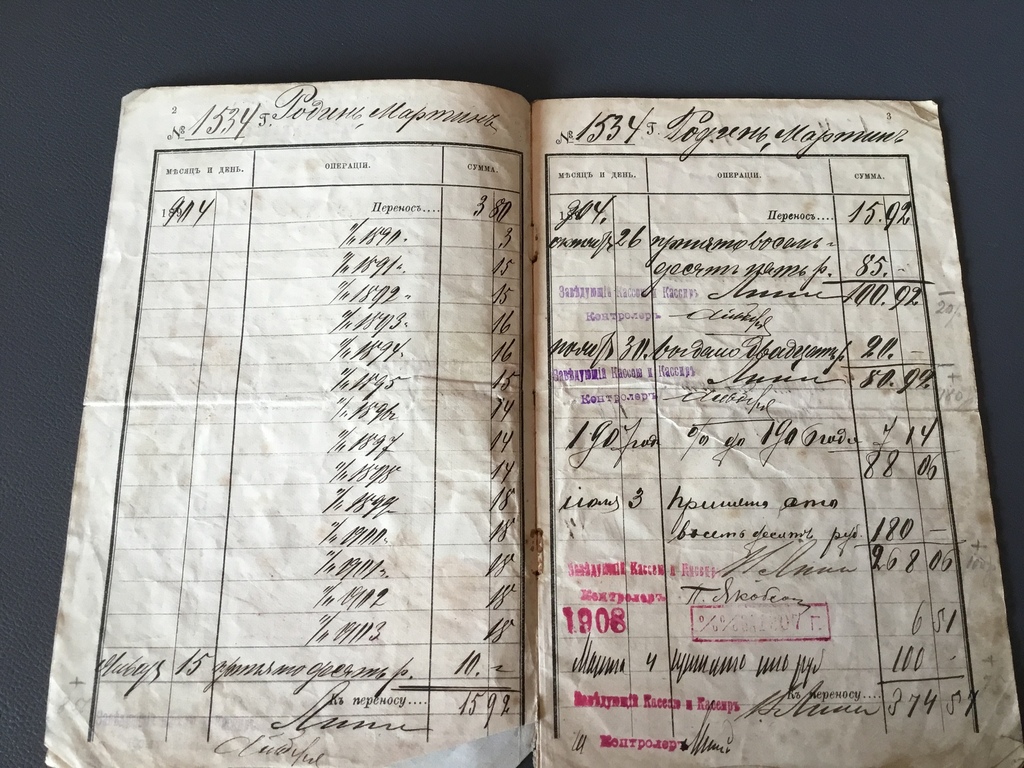 2
№ 1534 г. Родинь, Мартинъ
МѢСЯЦЪ И ДЕНЬ. ОПЕРАЦІИ. СУММА.
1904 Переносъ.... 3 80
% 1890. 3
% 1891. 15
% 1892. 15
% 1893. 16
% 1894. 16
% 1895 15
% 1896 14
% 1897 14
% 1898 14
% 1899 18
% 1900. 18
% 1901. 18
% 1902 18
% 1903 18
15 принято десять р. 10. -
Къ переносу.... 15 92
3
№ 1534 г. Родинь, Мартинъ
МѢСЯЦЪ И ДЕНЬ. ОПЕРАЦІИ. СУММА.
904. Переносъ.... 15. 92
октябр. 26 принято восемь-
десять пять р. 85. -
Завѣдующій Кассою и Кассиръ 100. 92
Контролеръ
ноябр. 30. выдано двадцать р. 20. -
Завѣдующій Кассою и Кассиръ 80. 92
Контролеръ
1907 год % до 1906 года 7 14
88 06
июля 3 Принято сто
восемьдесятъ руб. 180 -
Завѣдующій Кассою и Кассиръ 268 06
Контролеръ П. Якобсон
1908 % 1907 Г. 6 51
Марта 4 принято сто руб 100 -
Къ переносу.... 374 57
Завѣдующій Кассою и Кассиръ
Контролеръ